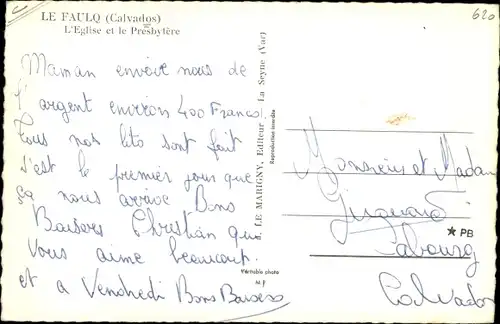 LE FAULQ (Calvados)
L'Eglise et le Presbytère
620
Maman envoie nous de
l'argent environ 400 Francs.
Tous nos lits sont fait
s'est le premier jour que
ça nous arrive Bons
Baisers Christian qui
Vous aime beaucoup.
et a Vendredi Bons Baisers
LE MARIGNY, Editeur, La Seyne (Var)
Reproduction interdite
Véritable photo
M.P
Monsieur et Madam
Cabourg
★ PB
Calvados